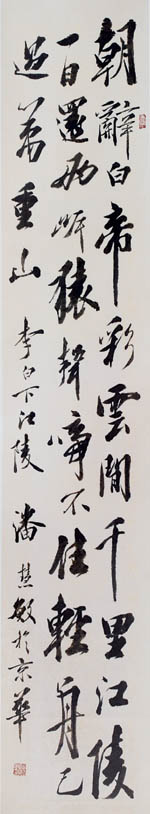 朝辭白帝彩雲間千里江陵
一日還兩岸猿聲啼不住輕舟已
過萬重山 李白下江陵 潘慧敏於京華